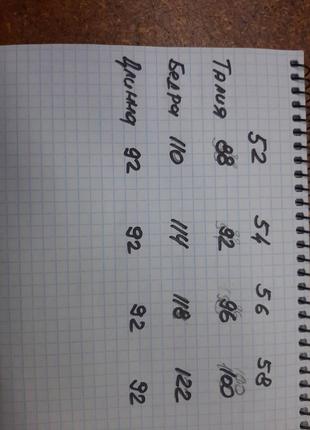 52 54 56 58
Талия 88 92 96 100
Бедра 110 114 118 122
Длинна 92 92 92 92